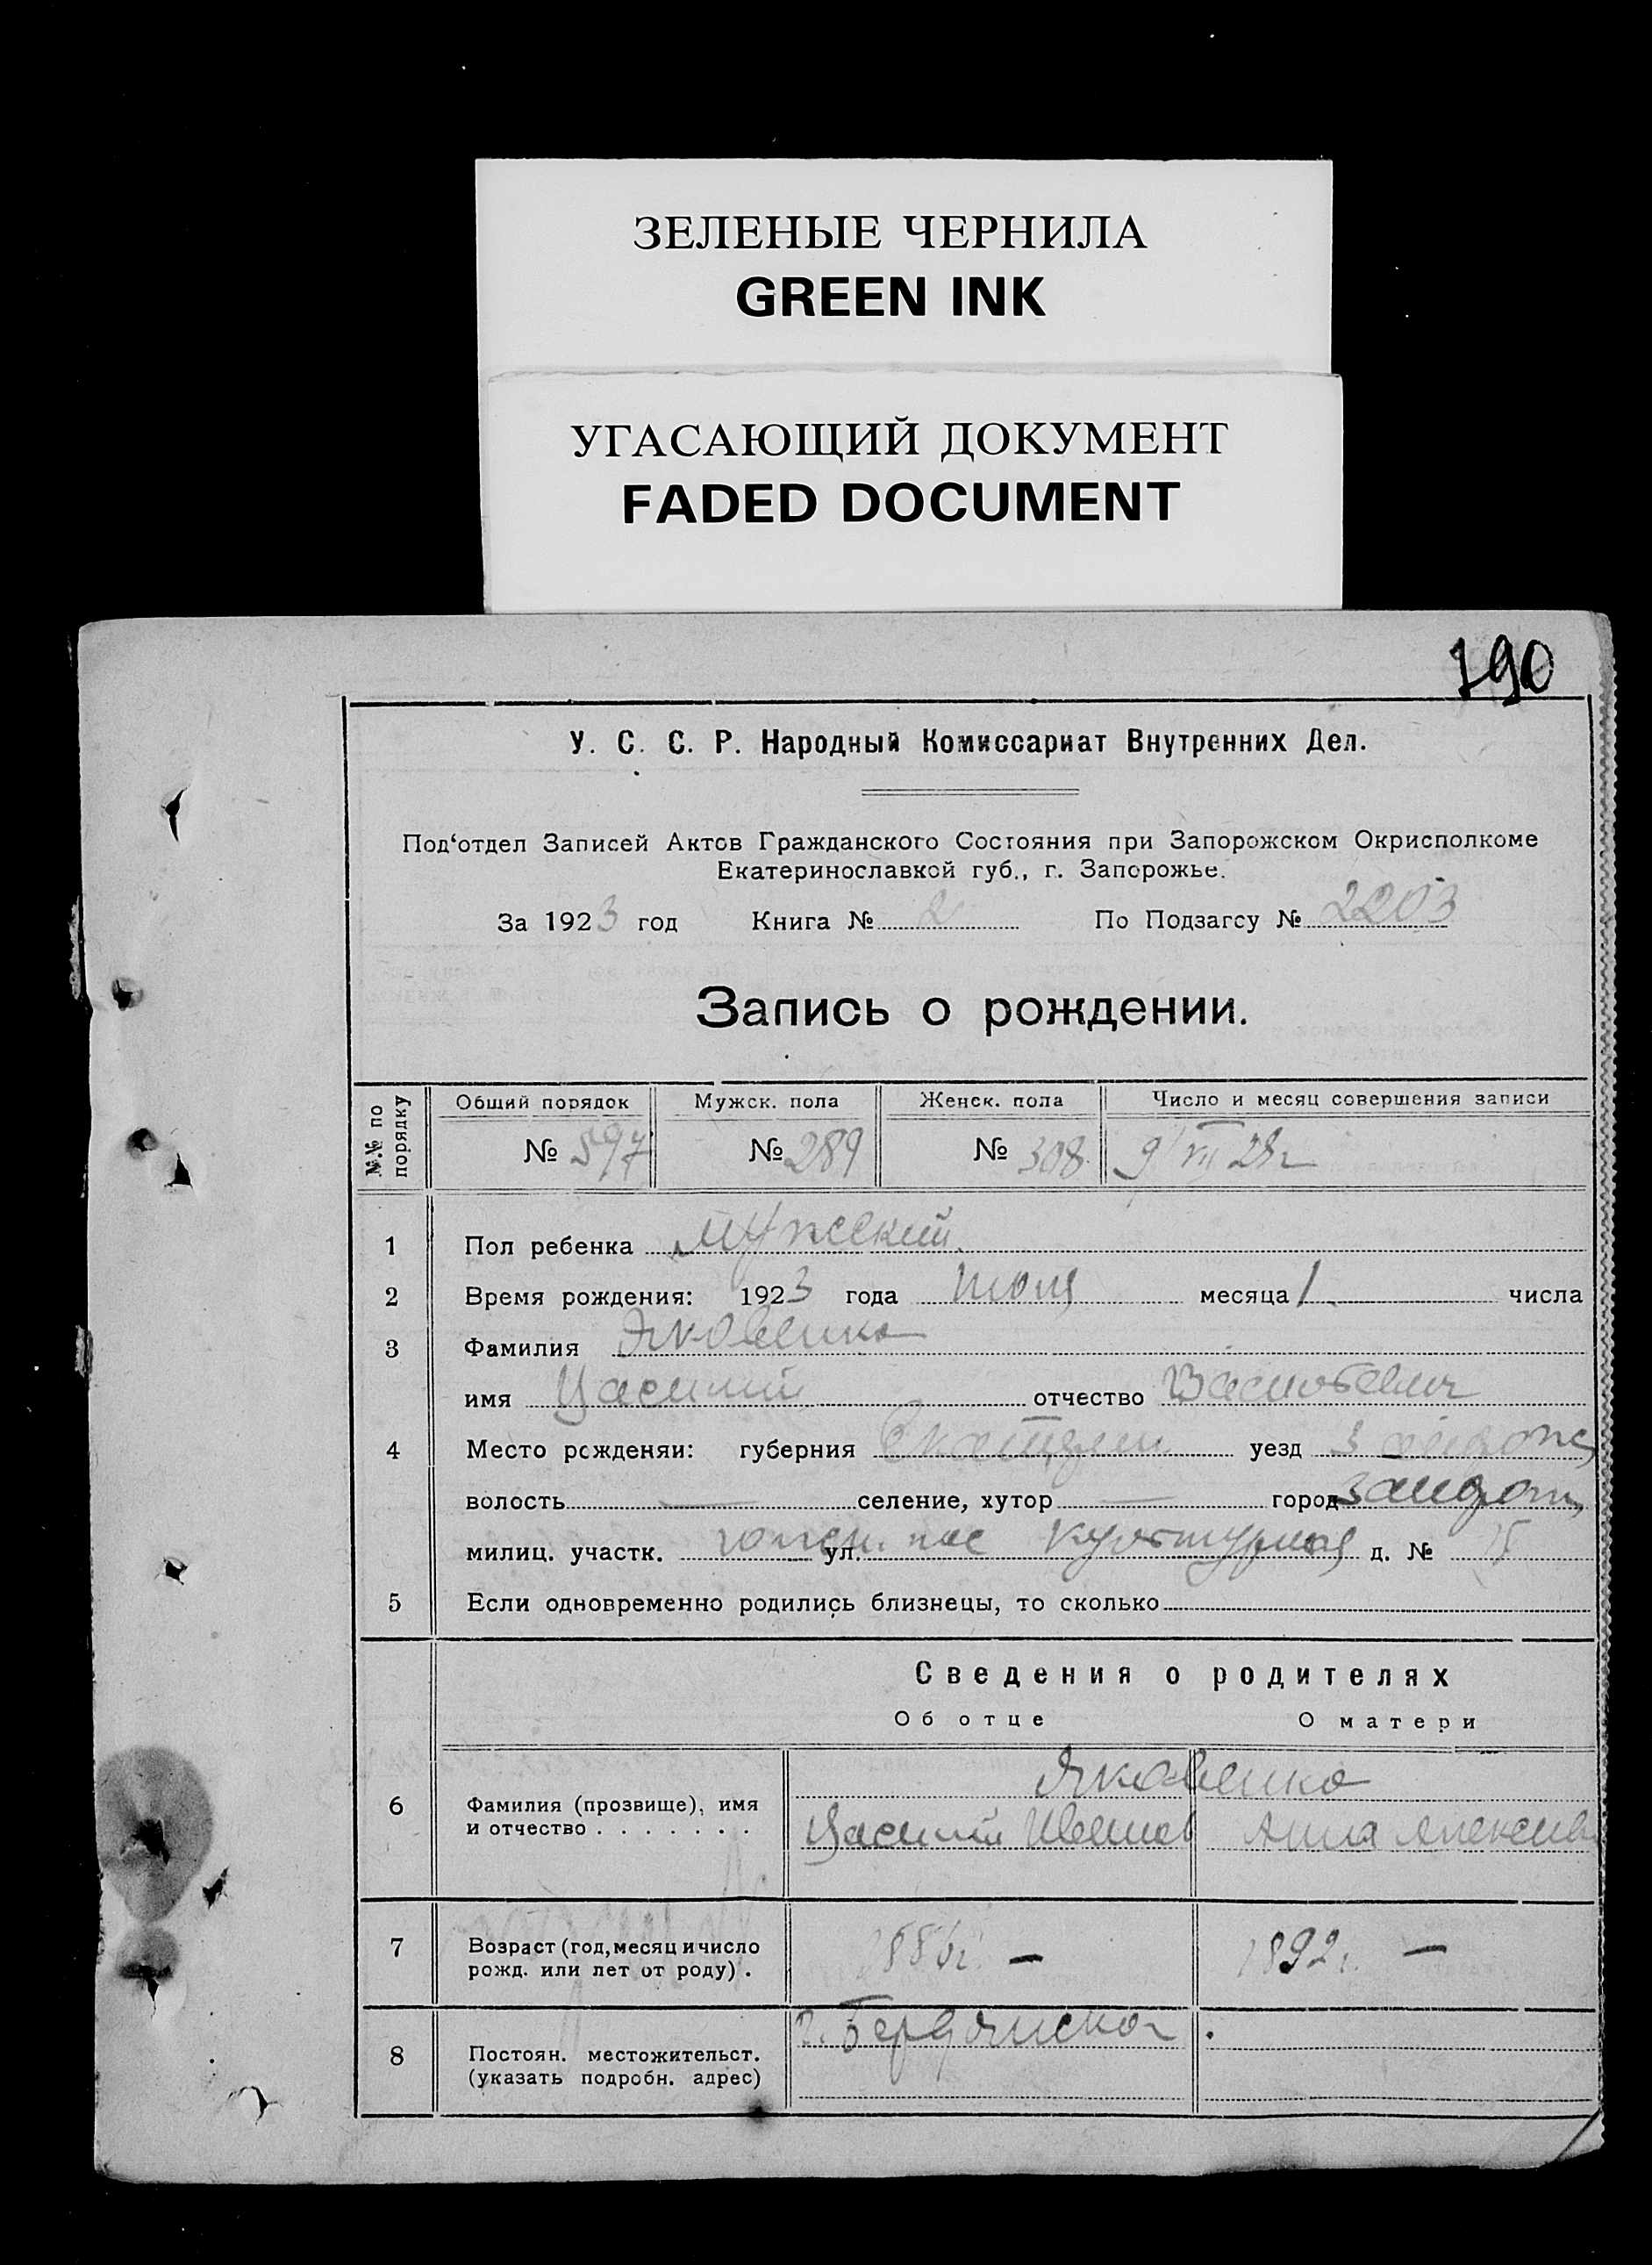 ЗЕЛЕНЫЕ ЧЕРНИЛА
GREEN INK
УГАСАЮЩИЙ ДОКУМЕНТ
FADED DOCUMENT
190
У. С. С. Р. Народный Комиссариат Внутренних Дел.
Под‘отдел Записей Актов Гражданского Состояния при Запорожском Окрисполкоме
Екатеринославкой губ., г. Запорожье.
За 1923 год Книга № 2 По Подзагсу № 2203
Запись о рождении.
№№ по порядку Общий порядок Мужск. пола Женск. пола Число и месяц совершения записи
№ 597 № 289 № 308 9/VII
1 Пол ребенка мужской
2 Время рождения: 1923 года июля месяца 1 числа
3 Фамилия Яковенко
имя Василий отчество Васильевич
4 Место рожденяи: губерния уезд
волость — селение, хутор — город
милиц. участк. ул. Культурная д. №
5 Если одновременно родились близнецы, то сколько
Сведения о родителях
Об отце О матери
Яковенко
6 Фамилия (прозвище), имя
и отчество . . . . . . . Василий Иванов Анна Алексеев
7 Возраст (год, месяц и число 1892г. —
рожд. или лет от роду) .
г. Бердянск
8 Постоян. местожительст.
(указать подробн. адрес)